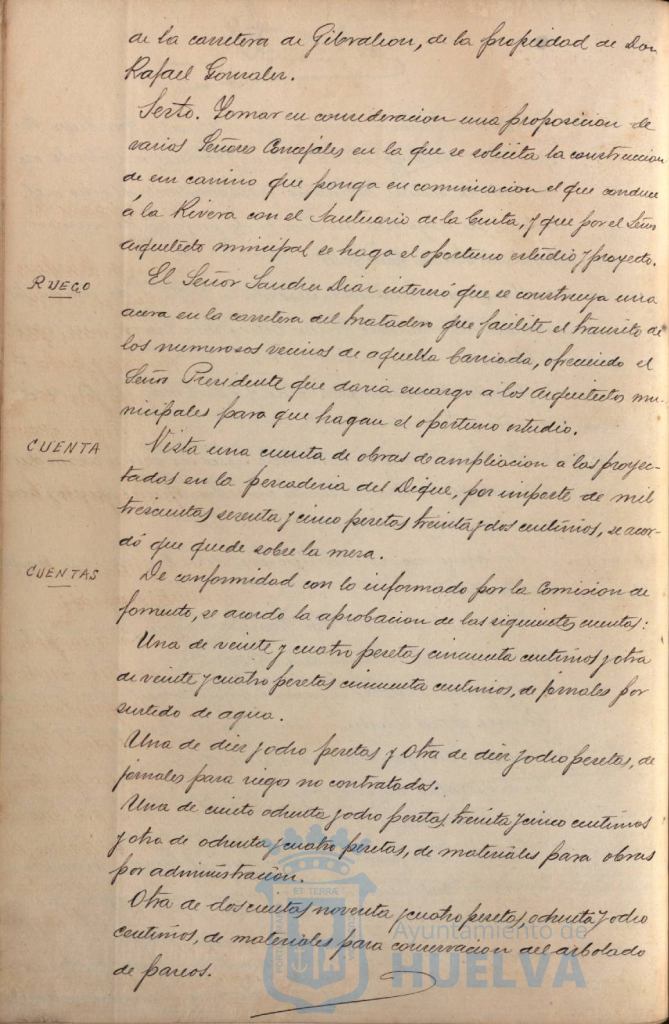 de la carretera de Gibraleon, de la propiedad de Don
Rafael Gonzalez.
Sexto. Tomar en consideracion una proposicion de
varios Señores Concejales en la que se solicita la construccion
de un camino que ponga en comunicacion el que conduce
á la Rivera con el Santuario de la Cinta, y que por el Señor
Arquitecto municipal se haga el oportuno estudio y proyecto.
RUEGO
El Señor Sanchez Diaz interesó que se construya una
acera en la carretera del matadero que facilite el transito de
los numerosos vecinos de aquella barriada, ofreciendo el
Señor Presidente que daria encargo a los Arquitectos mu-
nicipales para que hagan el oportuno estudio.
CUENTA
Vista una cuenta de obras de ampliacion a las proyec-
tadas en la pescaderia del Dique, por importe de mil
trescientas sesenta y cinco pesetas treinta y dos centimos, se acor-
dó que quede sobre la mesa.
CUENTAS
De conformidad con lo informado por la Comision de
fomento, se acordo la aprobacion de las siguientes cuentas:
Una de veinte y cuatro pesetas cincuenta centimos y otra
de veinte y cuatro pesetas cincuenta centimos, de jornales por
surtido de agua.
Una de diez y ocho pesetas y otra de diez y ocho pesetas, de
jornales para riegos no contratados.
Una de ciento ochenta y ocho pesetas, treinta y cinco centimos
y otra de ochenta y cuatro pesetas, de materiales para obras
por administración.
Otra de doscientas noventa y cuatro pesetas, ochenta y ocho
centimos, de materiales para conservacion del arbolado
de paseos.
Ayuntamiento de
HUELVA